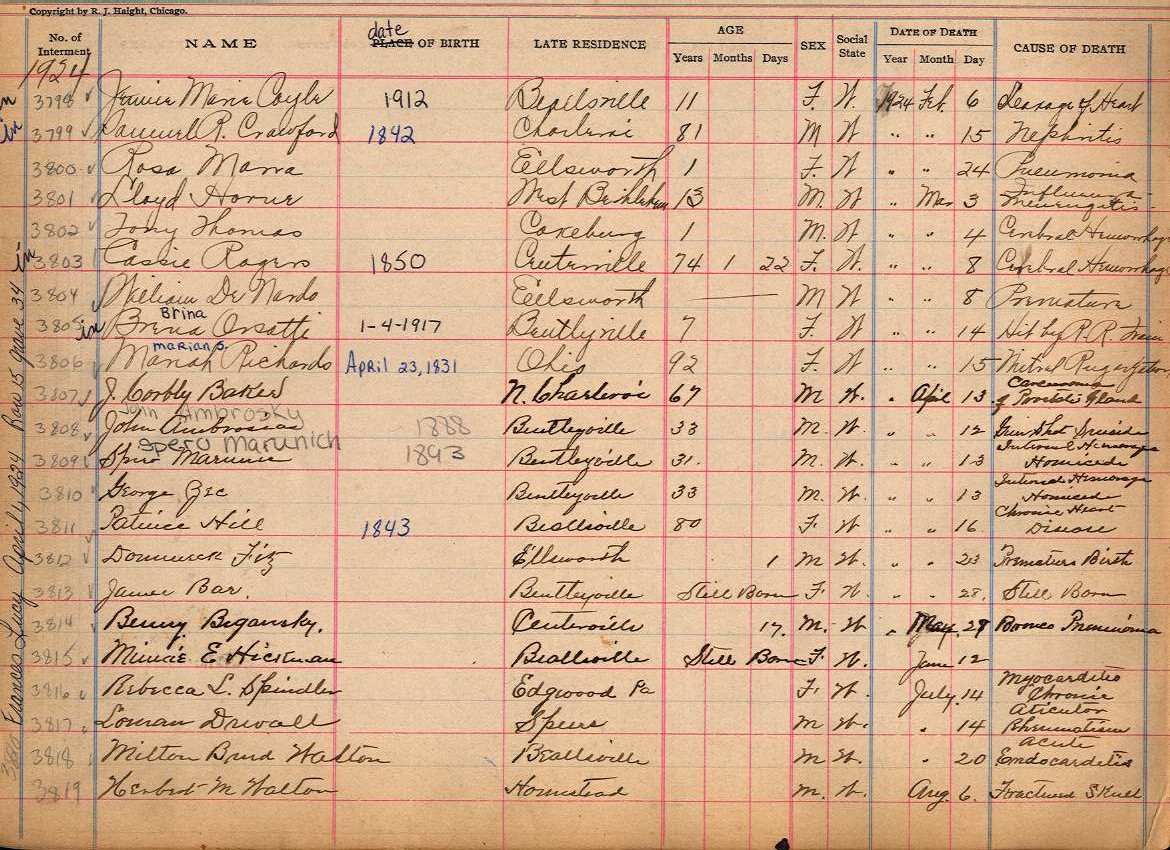 Copyright by R. J. Haight, Chicago.
No. of Interment NAME date PLACE OF BIRTH LATE RESIDENCE AGE Years Months Days SEX Social State DATE OF DEATH Year Month Day CAUSE OF DEATH
1924
in 3798 Jennie Marie Coyle 1912 Beallsville 11 F. W. 1924 Feb. 6 Leakage of Heart
in 3799 Samuel R. Crawford 1842 Charleroi 81 M W " " 15 Nephritis
3800 Rosa Marra Ellsworth 1 F. W " " 24 Pneumonia
3801 Lloyd Horne West Bethlehem 13 M. W. " Mar 3 Influenza - Meningitis
3802 Tony Thomas Cokeburg 1 M. W " " 4 Cerebral Hemorrhage
in 3803 Cassie Rogers 1850 Centerville 74 1 22 F. W. " " 8 Cerebral Hemorrhage
3804 William De Nardo Ellsworth — M W " " 8 Premature
Brina
in 3805 Orsatti 1-4-1917 Bentleyville 7 F. W " " 14 Hit by R.R. Train
marian s.
3806 Mariah Richards April 23, 1831 Ohio 92 F. W " " 15 Mitral
3807 J. Corbly Baker N. Charleroi 67 M W. " April 13 Carcenoma of Prostate Gland
John Ambrosky
3808 John 1888 Bentleyville 33 M. W. " " 12 Gun Shot Suicide
Spero Marunich
3809 Spiro 1893 Bentleyville 31. M. W. " " 13 Internal Hemorage Homicede
3810 George Zec Bentleyville 33 M. W. " " 13 Internal Hemorage Homiced
3811 Hill 1843 Beallsville 80 F. W " " 16 Chronic Heart Disease
3812 Dominick Fiz Ellsworth 1 M W. " " 23 Premature Birth
3813 Bar. Bentleyville Still Born F W. " " 28. Still Born
3814 Benny Begansky. Centerville 17. M. W " May 29 Bronco Pneumonia
3815 Minnie E Hickman Beallsville Still Born F W. June 12
3816 Rebecca L. Spindler Edgwood Pa F. W. July 14 Myocarditis Chronic
3817 Loman Duvall Speers M W. " 14 Aticulor Rheumatism
3818 Milton Burd Walton Beallsville M W. " 20 Acute Endocarditis
3819 Herbert M Walton Homstead M. W. Aug. 6. Fractured Skull
3820 Frances Lucy April 4, 1924 Row 15 grave 34